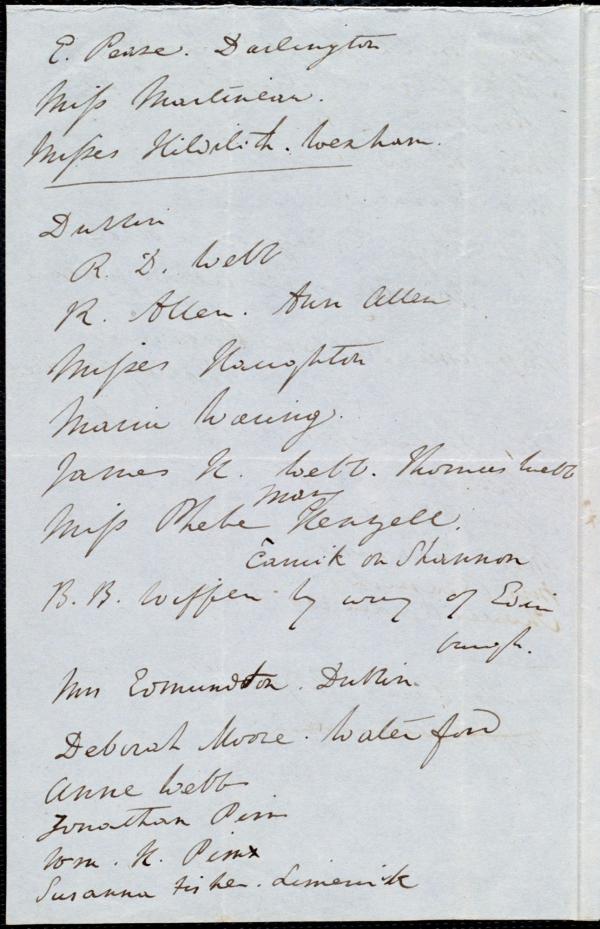 E. Pease. Darlington
Miss Martineau.
Misses Hildilith. Wexham.
Dublin
R. D. Webb
R. Allen. Ann Allen
Misses Haughton
Maria Waring.
James H. Webb. Thomas Webb
Mary
Miss Phebe Henzell.
Carrick on Shannon
B. B. Wiffen. by way of Edin
burgh.
Mrs Edmundson. Dublin.
Deborah Moore. Waterford
Anne Webb
Jonathan Pim
Wm. H. Pim
Susanna Fisher. Limerick